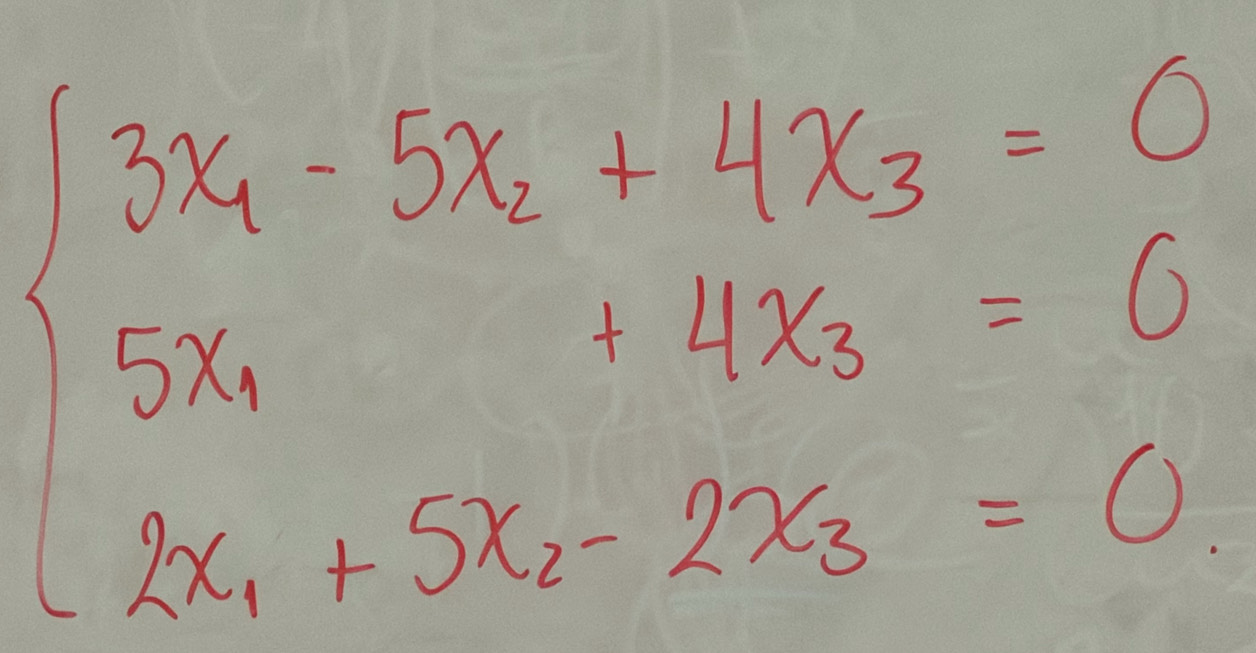 3x₁ - 5x₂ + 4x₃ = 0
5x₁ + 4x₃ = 0
2x₁ + 5x₂ - 2x₃ = 0.